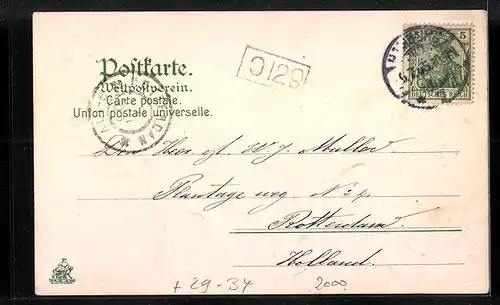 Postkarte.
Weltpostverein.
Carte postale.
Union postale universelle.
5
DEUTSCHES REICH
Den Heer W. J. Muller
Plantage weg No
Rotterdam
Holland.
+ 29-34
2000